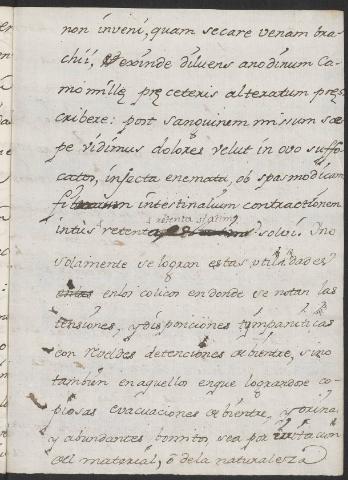 non invení, quam secare venam bra-
chii, & exinde diluens anodinum Ca-
momillę pręceteris alteratum pręs-
cribere: post sanguinem missum sæ-
pe vidimus dolores velut in ovo suffo-
catos, injecta enemata, ob spasmodicum
intestinalium contractionem
intùs retenta solvi. Ino
retenta statim
solamente se logran estas utilidades
enlos colicos en donde se notan las
tensiones, y disposiciones tympaniticas
con reveldes detenciones de bientre, sino
tambien en aquellos en que lograndose co-
piosas evacuaciones de bientre, y orina
y abundantes bomitos, sea por
del material, ô dela naturaleza